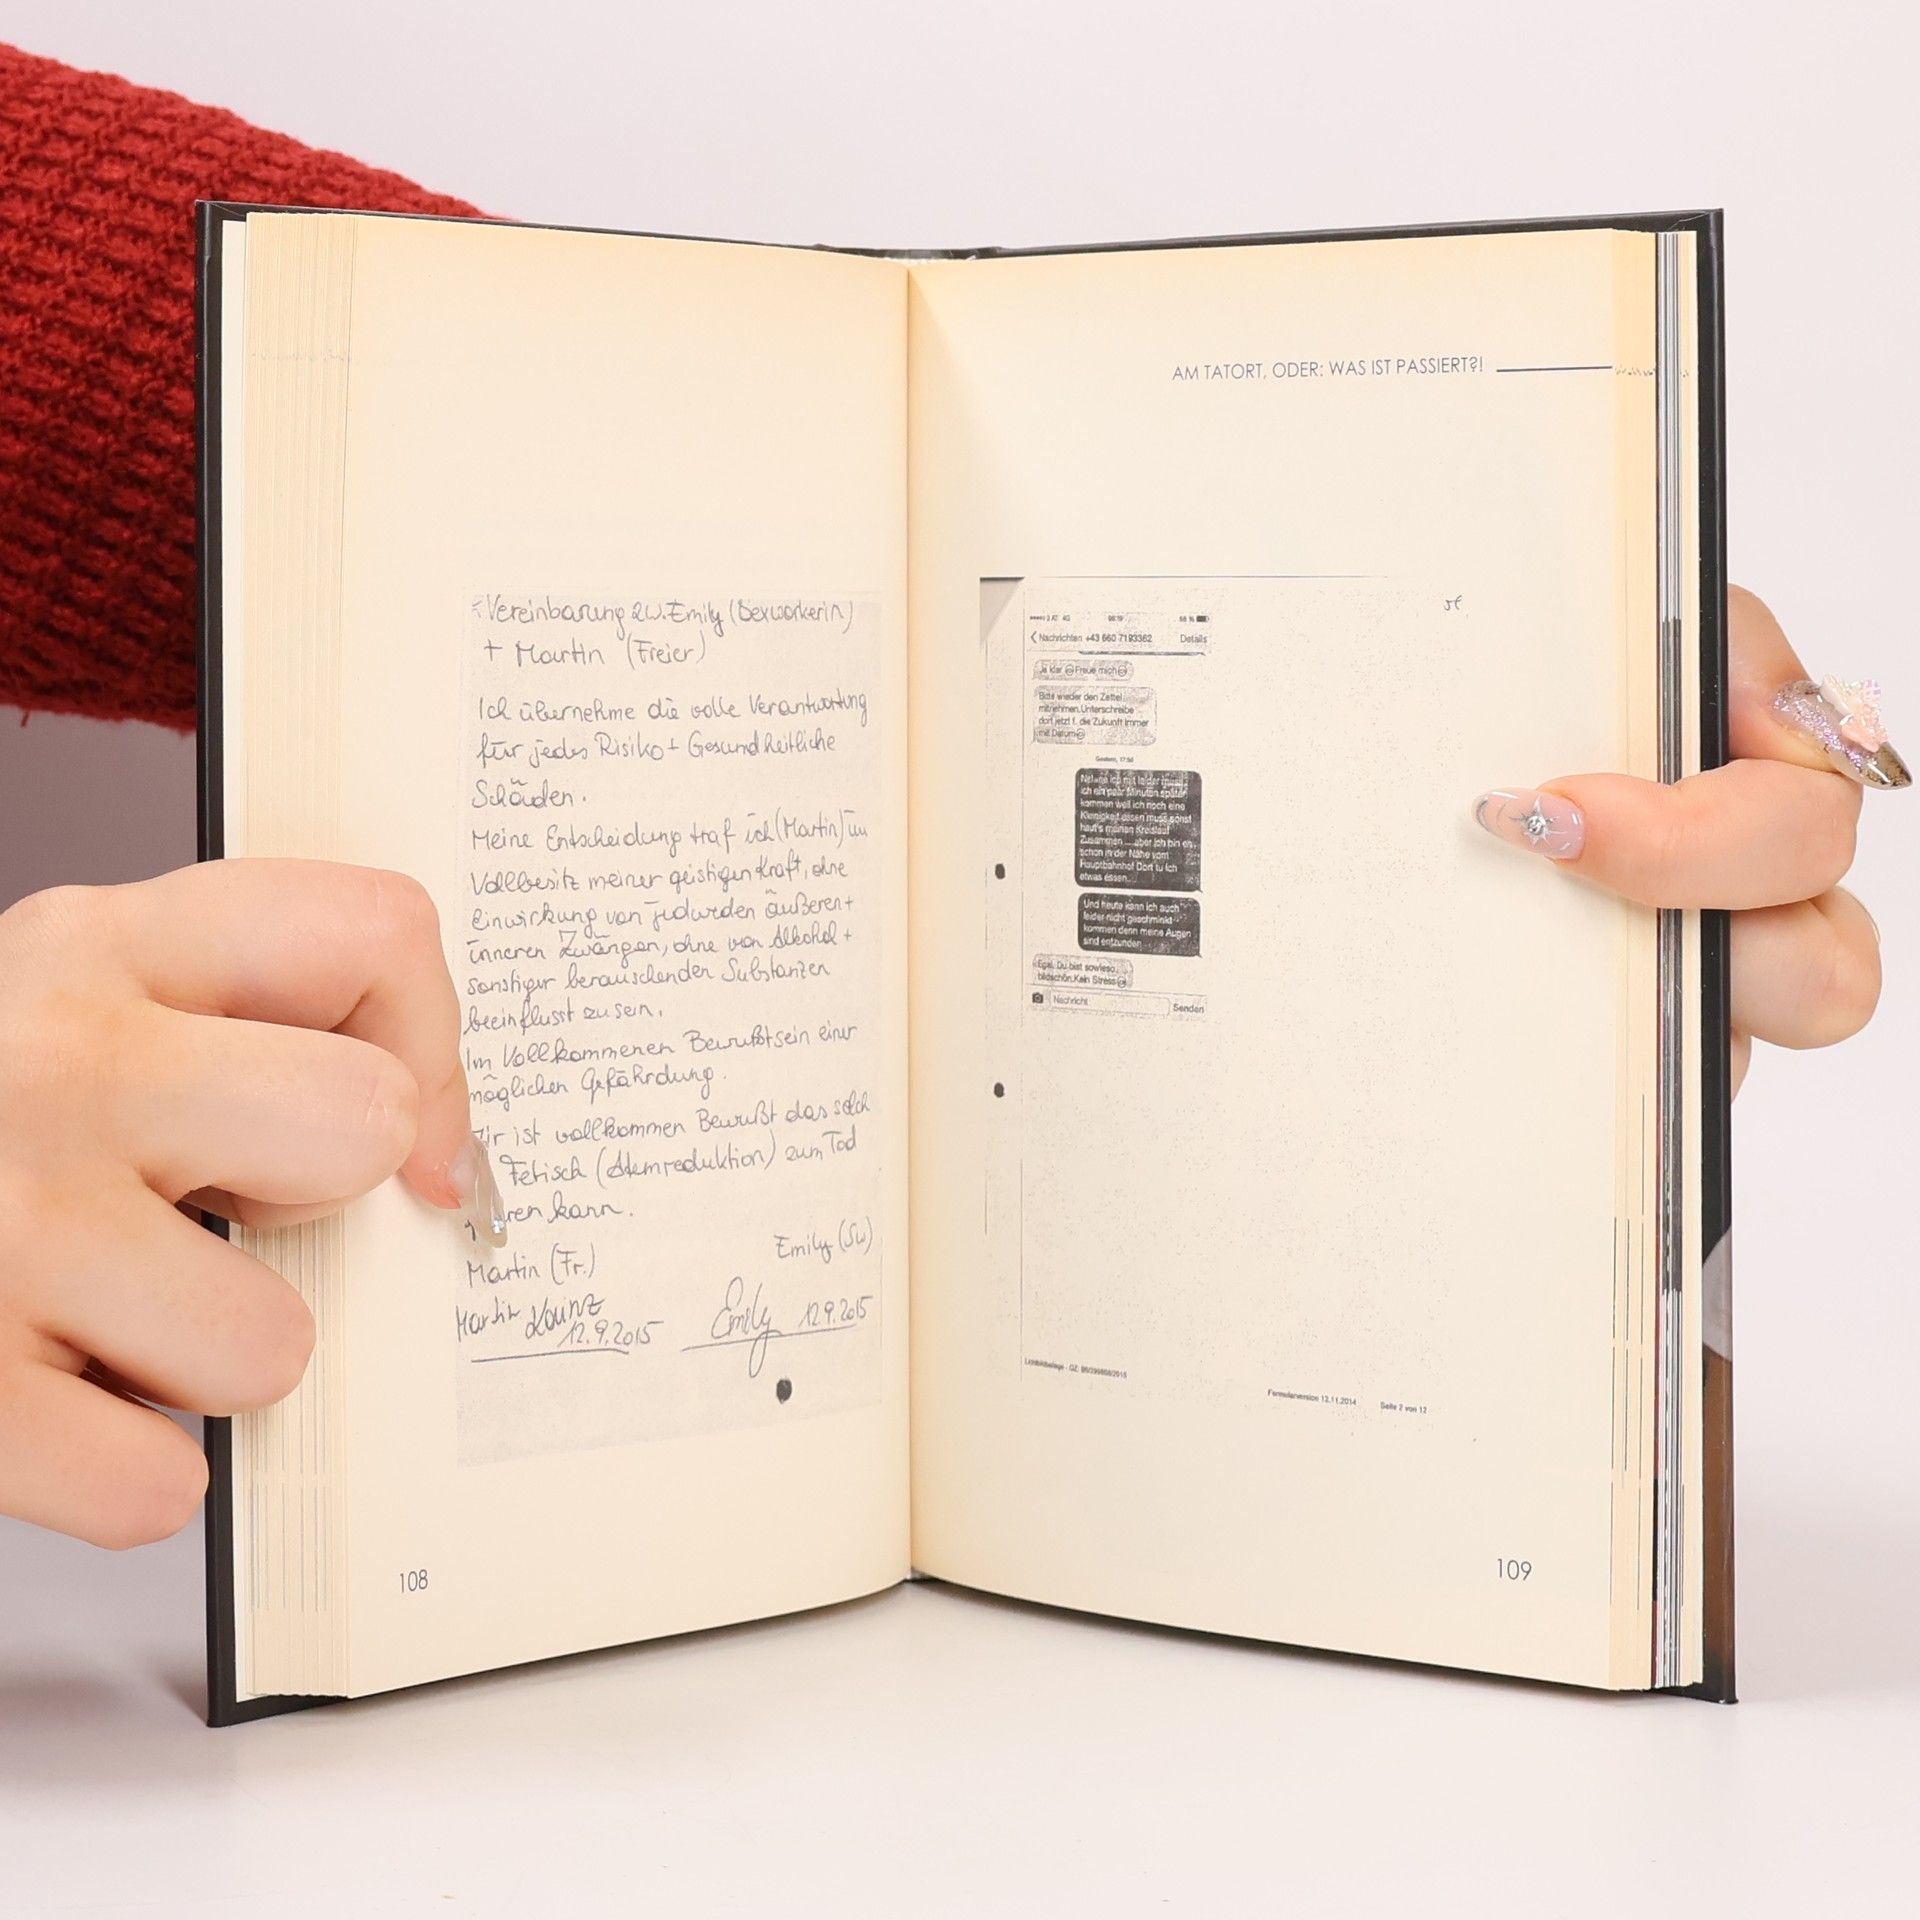 Vereinbarung zw. Emily (Sexworkerin)
+ Martin (Freier)
Ich übernehme die volle Verantwortung
für jedes Risiko + Gesundheitliche
Schäden.
Meine Entscheidung traf ich (Martin) im
Vollbesitz meiner geistigen Kraft, ohne
Einwirkung von jedweden äußeren +
inneren Zwängen, ohne von Alkohol +
sonstiger berauschenden Substanzen
beeinflusst zu sein.
Im Vollkommenen Bewußtsein einer
möglichen Gefährdung.
ist vollkommen Bewußt das solch
Fetisch (Atemreduktion) zum Tod
kann.
Emily (SW)
Martin (Fr.)
Martin
12.9.2015
Emily 12.9.2015
108
AM TATORT, ODER: WAS IST PASSIERT?!
3 AT 4G
Nachrichten +43 660 7193362 Details
Ja klar Freue mich
Bitte wieder den Zettel
mitnehmen.Unterschreibe
dort jetzt f. die Zukunft immer
mit Datum
Gestern, 17:50
ich ein paar Minuten später
kommen weil ich noch eine
Kleinigkeit essen muss sonst
haut's meinen Kreislauf
Zusammen ....aber ich bin eh
schon in der Nähe vom
Hauptbahnhof Dort tu ich
etwas essen...
Und heute kann ich auch
leider nicht geschminkt
kommen denn meine Augen
sind entzunden
Egal. Du bist sowieso
bildschön.Kein Stress
Nachricht Senden
Lichtbildbeilage - GZ:
Formularversion 12.11.2014 Seite 2 von 12
109